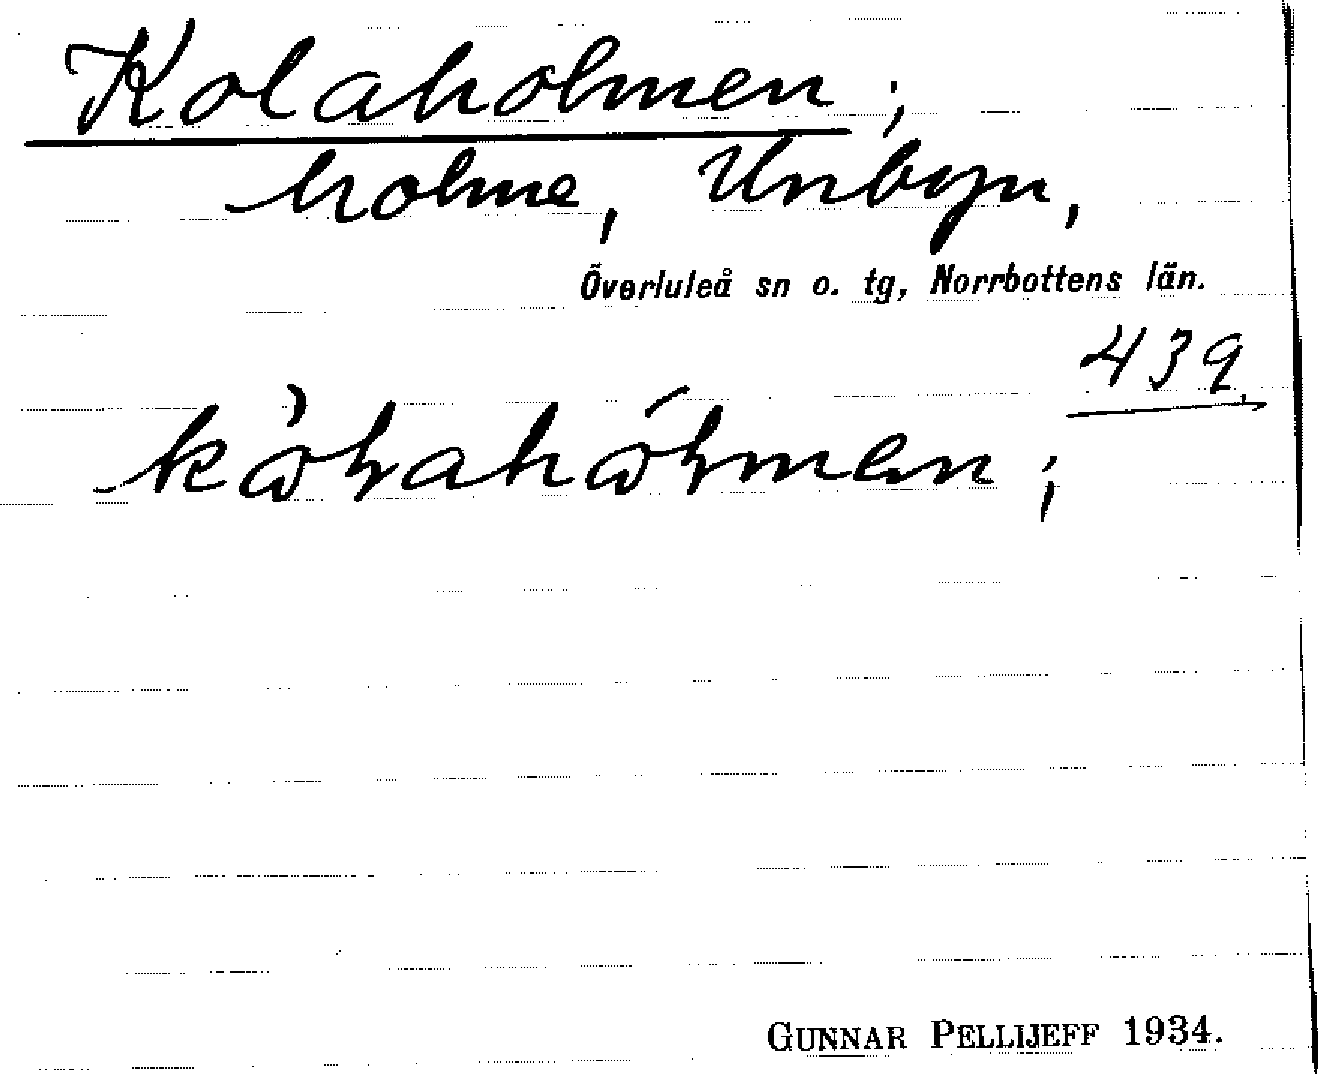 Kolaholmen;
holme, Unbyn,
Överluleå sn o. tg, Norrbottens län.
439
kɷ̀ɽahɷ́ɽmen;
GUNNAR PELLIJEFF 1934.